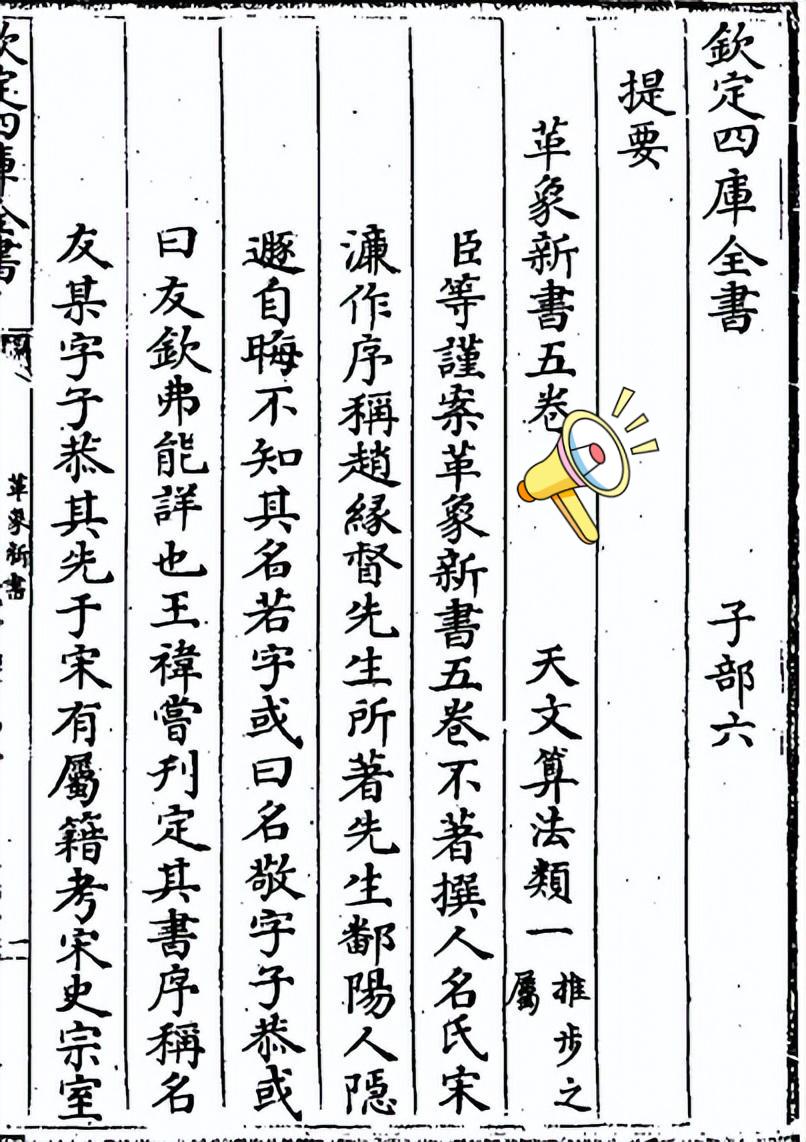 欽定四庫全書 子部六
提要
革象新書五卷 天文算法類一 推步之屬
臣等謹案革象新書五卷不著撰人名氏宋
濂作序稱趙緣督先生所著先生鄱陽人隱
遯自晦不知其名若字或曰名敬字子恭或
曰友欽弗能詳也王禕嘗刋定其書序稱名
友某字子恭其先于宋有屬籍考宋史宗室
欽定四庫全書
革象新書